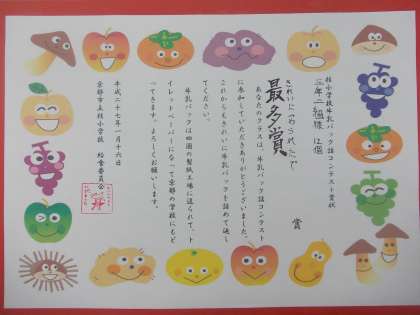 桂小学校牛乳パック詰コンテスト賞状
三年二組様 12個
きれいにつめられたで賞
最多賞
あなたのクラスは、牛乳パック詰コンテスト
に参加していただきありがとうございました。
これからもきれいに牛乳パックを詰めて返し
てください。
牛乳パックは四国の製紙工場に送られて、ト
イレットペーパーになって京都の学校にもど
ってきます。よろしくお願いします。
平成二十七年一月十六日
京都市立桂小学校 給食委員会